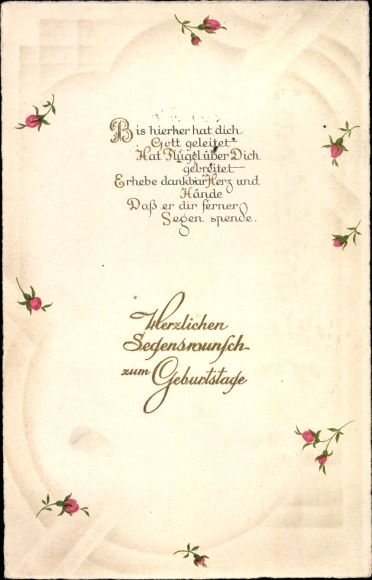 Bis hierher hat dich
Gott geleitet
Hat Flügel über Dich
gebreitet
Erhebe dankbar Herz und
Hände
Daß er dir ferner
Segen spende.
Herzlichen
Segenswunsch
zum Geburtstage